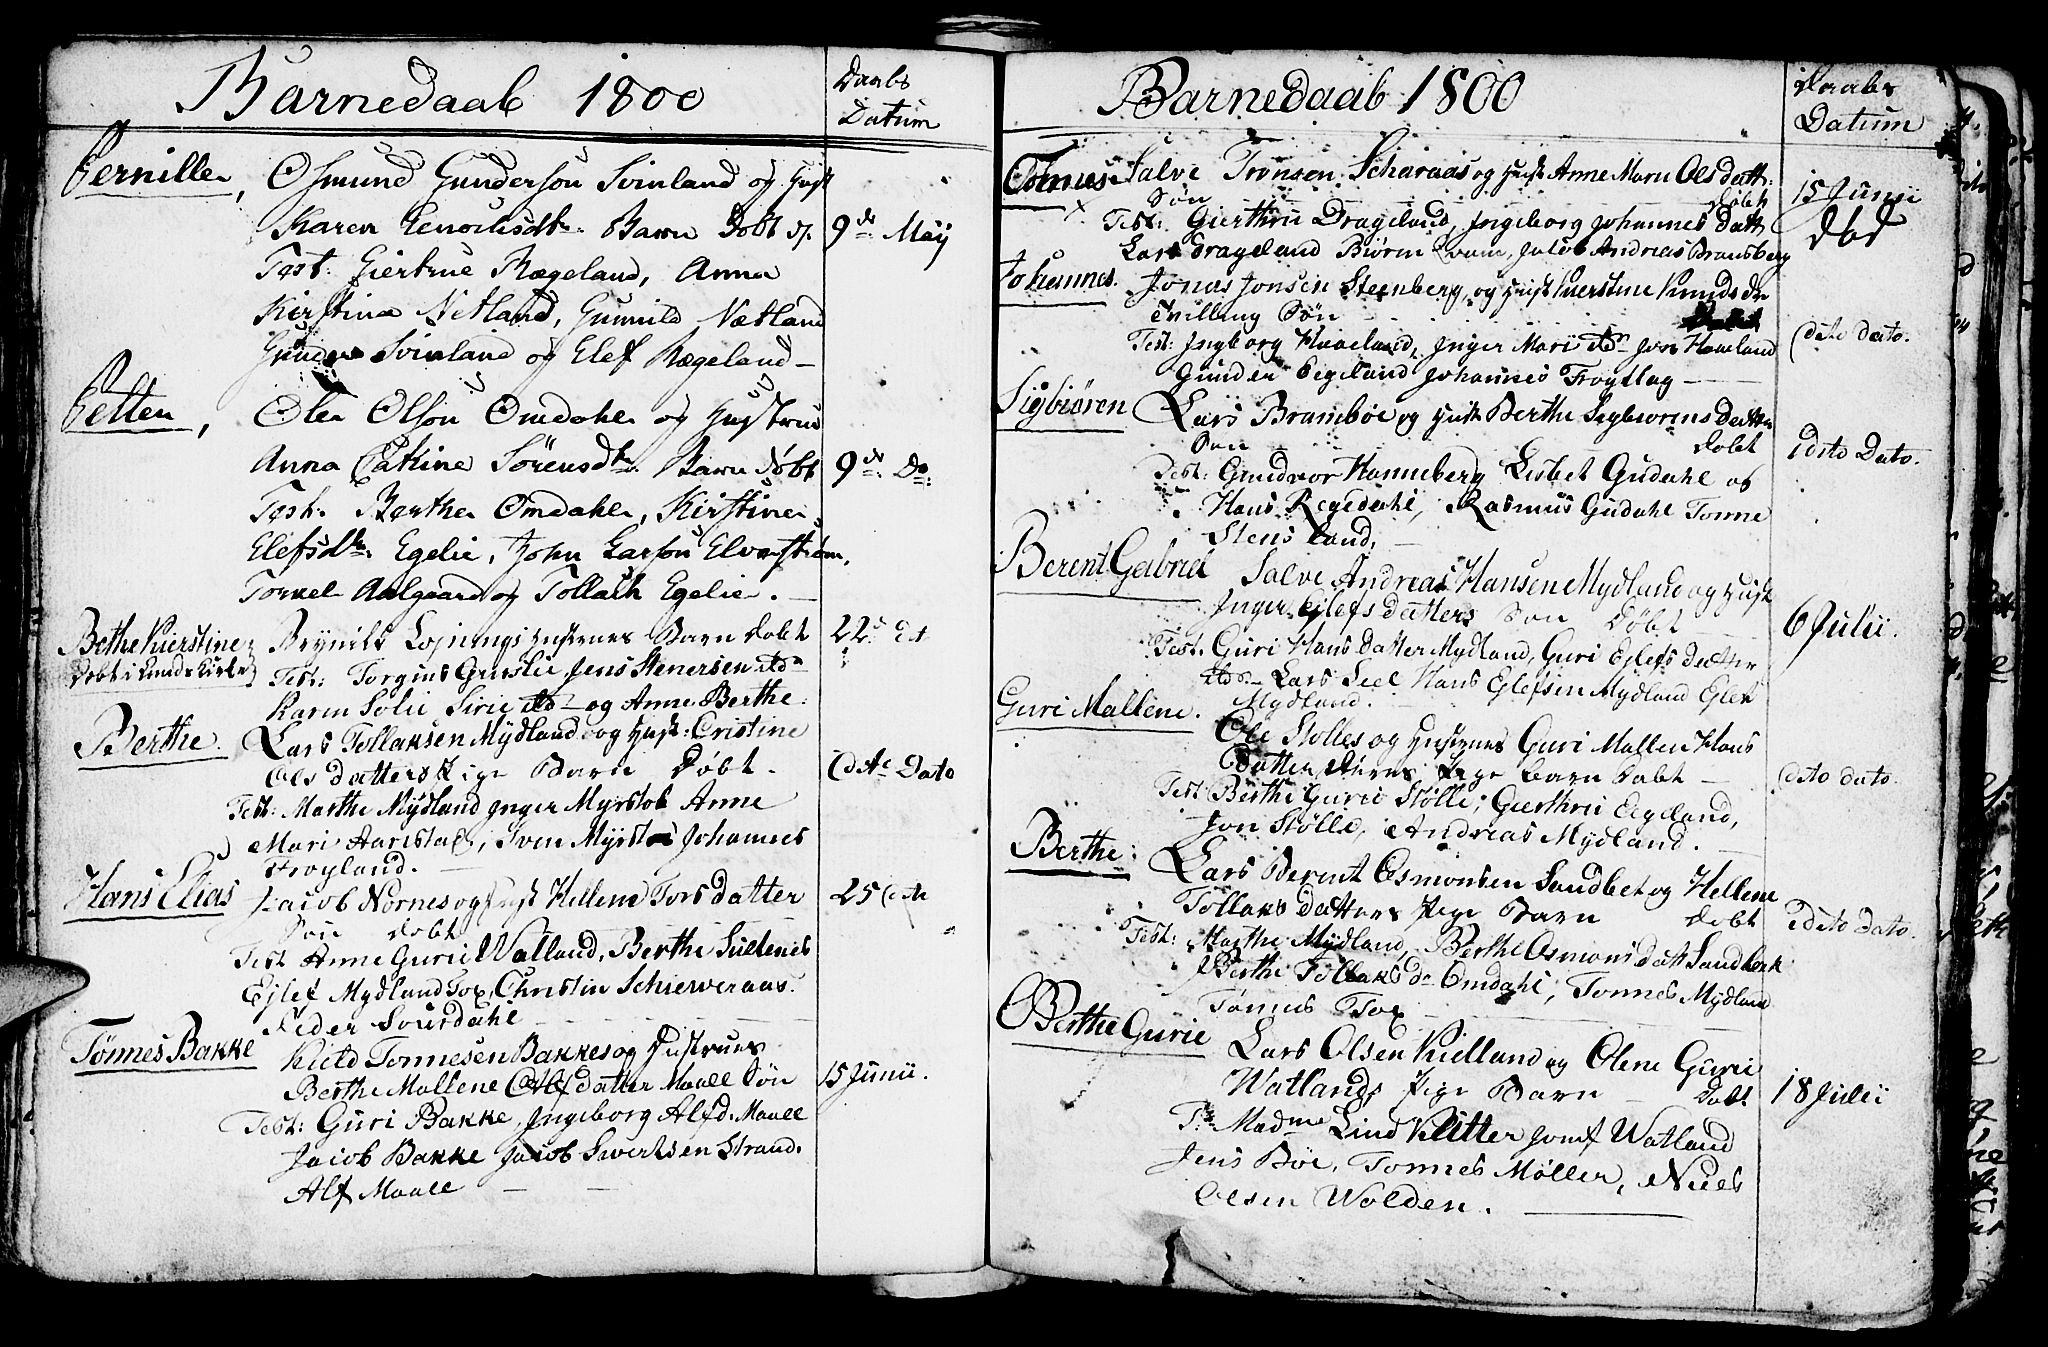 Barnedaab 1800
Daabs
Datum
Pernille, Osmund Gunderson Svinland og Hust
Karen Enochsdtr. Barn Dobt d. 9de May
Test: Giertrue Rægeland, Anna
Kirstina Netland, Gunnild Nætland
Gunder Svinland og Elef Rægeland
Petter, Ole Olson Omdahl og Hustrue
Anna Catrine Sörensdtr. Barn döbt 9de Do:
Test. Berthe Omdahl, Kirstine
Elefsdtr. Egelie, John Larson
Torkel Aalgaard og Tollach Egelie.
Bethe Kierstine Brynild Hustrues Barn dobt 22
Dobt i Lunds Kirke Test: Torgius Jens Stenersen itd
Karen Solie Sirie itd og Anne Berthe.
Berthe. Lars Tollaksen Mydland og Hust: Cristine
Olsdatters Pige Barn Döbt. dito Dato
Test: Marthe Mydland Inger Myrstol Anne
Mari Aarestad, Sven Myrstol Johannes
Froyland.
Hans Elias Jacob Nornes og Hust Hellene Tors datter 25 dito
Son dobt
Test Anne Guri Watland, Berthe
Ejlef Mydland Tox, Christin
Peder Sourdahl
Tönnes Bakke Kield Tonnesen Bakkes og Hustrues
Berthe Mallene Alfdatter Maale Sön 15 Junii.
Test: Guri Bakke, Ingeborg Alfd. Maale
Jacob Bakke Jacob Swertsen Strand.
Alf Maale
Barnedaab 1800
Daabs
Datum
Tönnes Salve Tronsen Scharaas og Hust Anne Maru Olsdatt: 15 Junii
Sön dobt död
Test: Gierthru Drageland, Ingeborg Johannes Datt
Lars Drageland Biörn Jacob Andreas Bransberg
Johannes. Jonas Jonsen Steenberg, og Hust Kierstine Knudsdr
Tvilling Sön dito dato.
Test: Ingborg Haaeland, Inger Mari itd Jens Haaland
Gunder Eegeland Johannes
Sigbiören Lars Bramböe og Hust Berthe Sigbiorens datter
Son dobt dito Dato.
Test: Gundvor Hanneberg Lisbet Gudahl og
Hans Regedahl, Rasmus Gudahl Tonne
Stensland.
Berent Gabriel Salve Andreas Hansen Mydland og Hust
Inger Ejlefsdatters Son Döbt 6 Julii.
Test. Guri Hansdatter Mydland, Guri Ejlefs datter
itd Lars Hans Ejlefsen Mydland Ejlef
Mydland.
Guri Mallene. Ole Stölles og Hustrues Guri Mallen Hans
Datter Pige barn dobt dito dato.
Test: Berthe Guri Stölle, Gierthru Eigeland,
Jon Stölle, Andreas Mydland.
Berthe: Lars Berent Osmonsen Sandbek og Hellene
Tollaksdatters Pige Barn dobt dito dato.
Test: Marthe Mydland, Berthe Osmonsdatt Sandbek
Berthe Tollaksdr Omdahl, Tonnes Mydland
Tönnes Tox
Berthe Gurie Lars Olsen Kielland og Olene Gurie
Watlands Pige Barn dobt 18 Julii
T: Madme Lind Jomf Watland
Jens Böe, Tonnes Möller, Niels
Olsen Wolden.